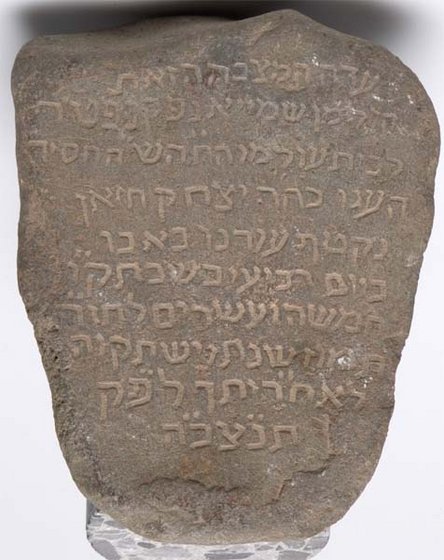 עדה המצבה הזאת
מן שמייא נפק
לבית עולמו החסיד
הענו כהר יצחק חזאן
נקטף עודנו באבו
ביום רביעי בשבת
חמשה ועשרים לחדש
תמוז שנת ויש תקוה
לאחריתך לפק
תנצבה